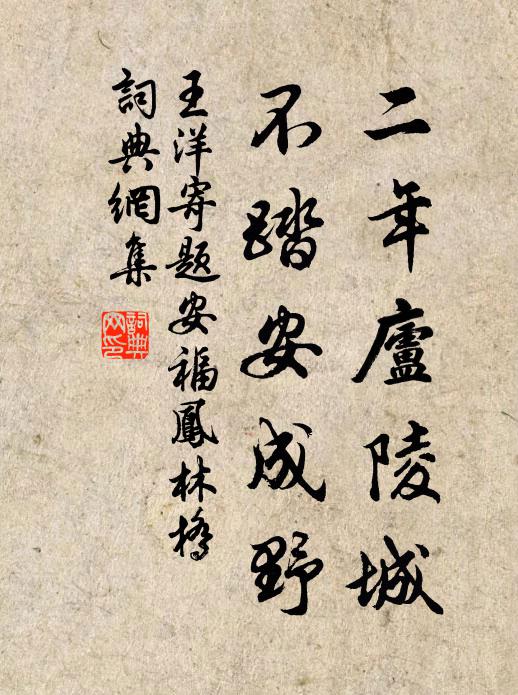 二年廬陵城
不踏安成野
王洋寄題安福鳳林橋
詞典網集
詞典网印